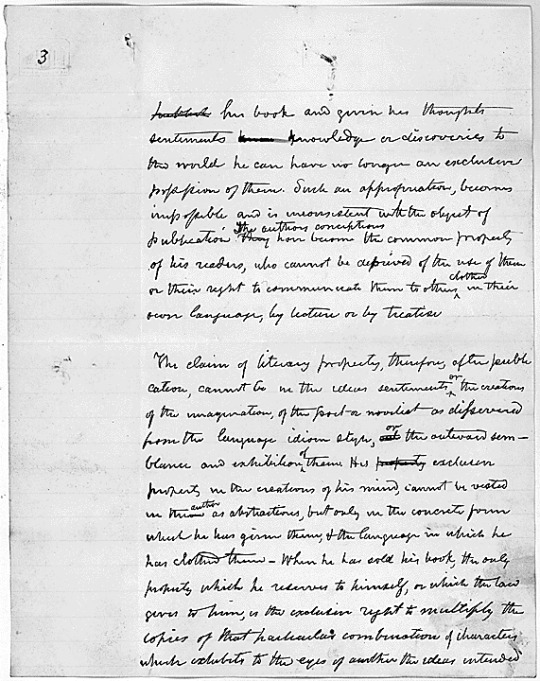 3
his book and given his thoughts
sentiments knowledge or discoveries to
the world he can have no longer an exclusive
possession of them. Such an appropriation, becomes
impossible and is inconsistent with the object of
the authors conceptions
publication They have become the common property
of his readers, who cannot be deprived of the use of them
clothed
or their right to communicate them to others in their
own language, by lecture or by treatise
The claim of literary property, therefore, after publi
or
cation, cannot be in the ideas sentiments the creations
of the imagination, of the poet or novelist as dissevered
or
from the language idiom style, the outward sem-
of
blance and exhibition them His property exclusive
property in the creations of his mind, cannot be vested
author
in the as abstractions, but only in the concrete form
which he has given them, & the language in which he
has clothed them - When he has sold his book, the only
property which he reserves to himself, or which the law
gives to him, is the exclusive right to multiply the
copies of that particular combination of characters
which exhibits to the eyes of another the ideas intended